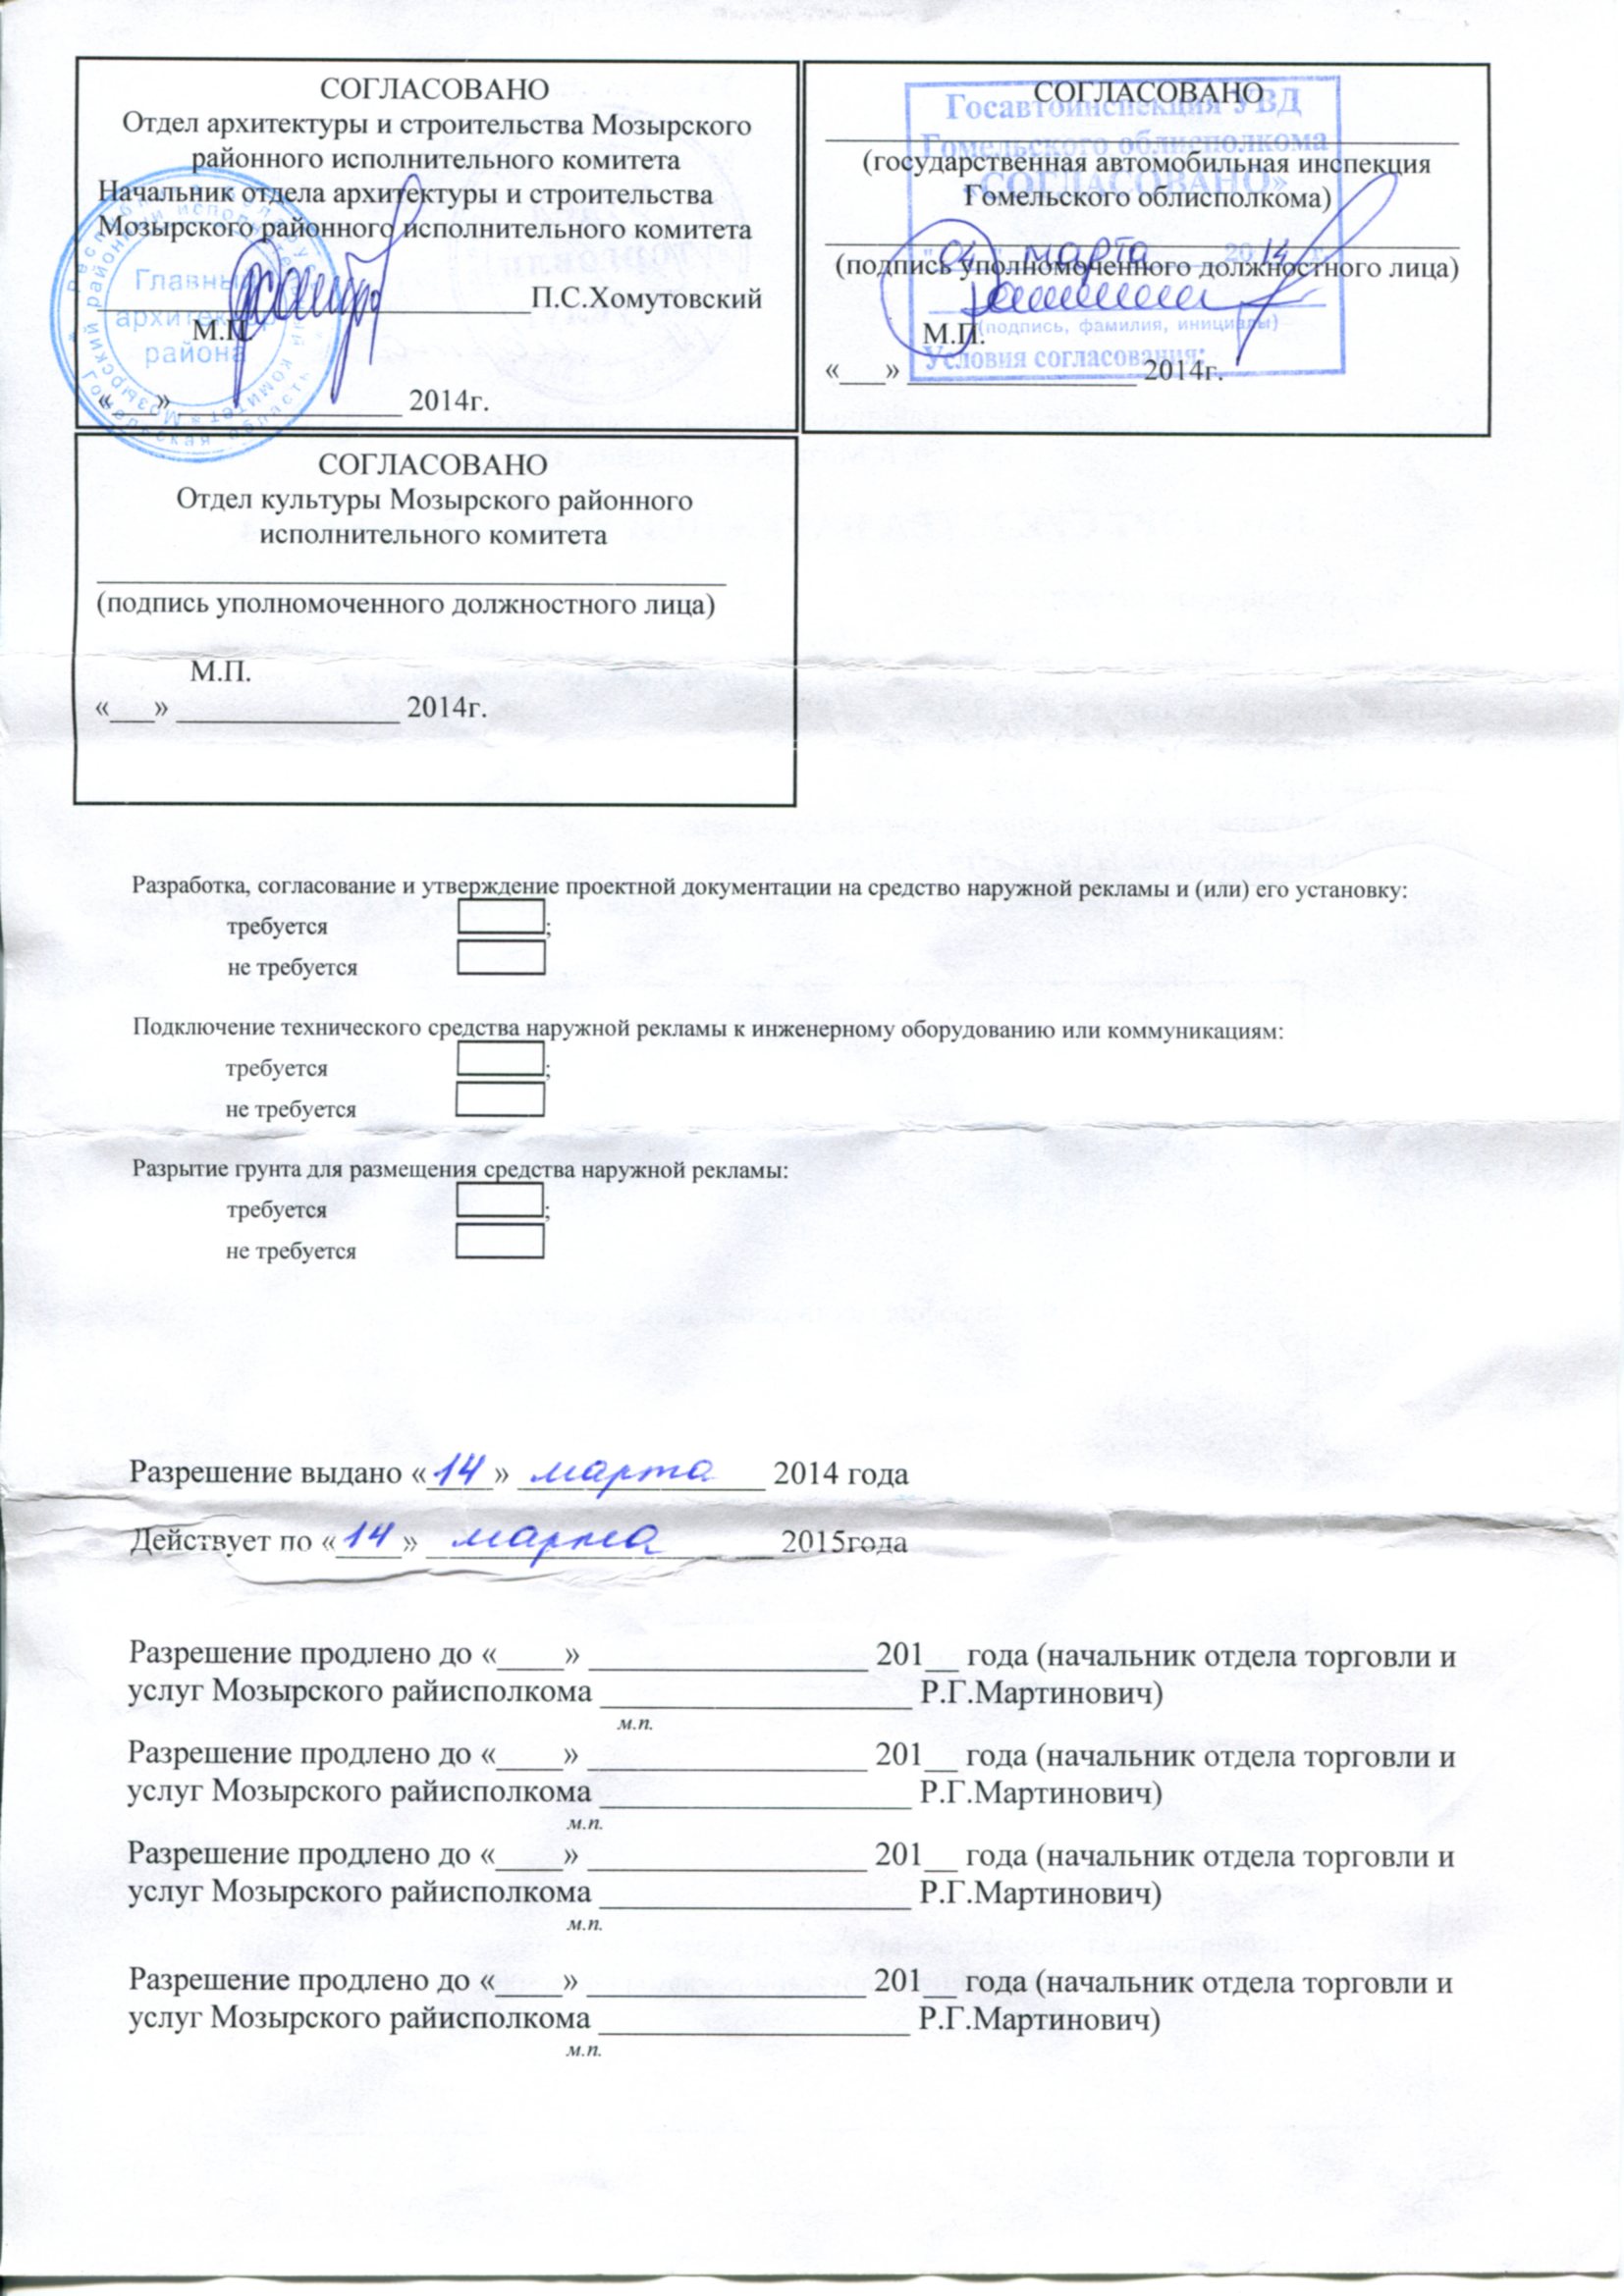 СОГЛАСОВАНО
Отдел архитектуры и строительства Мозырского
районного исполнительного комитета
Начальник отдела архитектуры и строительства
Мозырского районного исполнительного комитета
____________________________П.С.Хомутовский
М.П.
«___» _______________ 2014г.
Главный
архитектор
района
СОГЛАСОВАНО
(государственная автомобильная инспекция
Гомельского облисполкома)
(подпись уполномоченного должностного лица)
М.П.
«___» _______________ 2014г.
Госавтоинспекция УВД
Гомельского облисполкома
«СОГЛАСОВАНО»
"04" марта 2014 г.
(подпись, фамилия, инициалы)
Условия согласования:
СОГЛАСОВАНО
Отдел культуры Мозырского районного
исполнительного комитета
(подпись уполномоченного должностного лица)
М.П.
«___» _______________ 2014г.
Разработка, согласование и утверждение проектной документации на средство наружной рекламы и (или) его установку:
требуется ;
не требуется
Подключение технического средства наружной рекламы к инженерному оборудованию или коммуникациям:
требуется ;
не требуется
Разрытие грунта для размещения средства наружной рекламы:
требуется ;
не требуется
Разрешение выдано «14» марта 2014 года
Действует по «14» марта 2015года
Разрешение продлено до «____» _________________ 201__ года (начальник отдела торговли и
услуг Мозырского райисполкома ___________________ Р.Г.Мартинович)
м.п.
Разрешение продлено до «____» _________________ 201__ года (начальник отдела торговли и
услуг Мозырского райисполкома ___________________ Р.Г.Мартинович)
м.п.
Разрешение продлено до «____» _________________ 201__ года (начальник отдела торговли и
услуг Мозырского райисполкома ___________________ Р.Г.Мартинович)
м.п.
Разрешение продлено до «____» _________________ 201__ года (начальник отдела торговли и
услуг Мозырского райисполкома ___________________ Р.Г.Мартинович)
м.п.